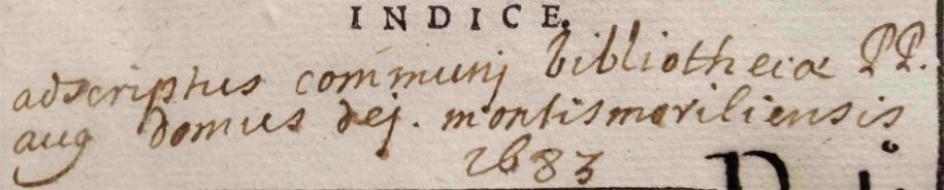 INDICE.
adscriptus communj bibliothecæ PP.
aug domus dej. montismariliensis
1683